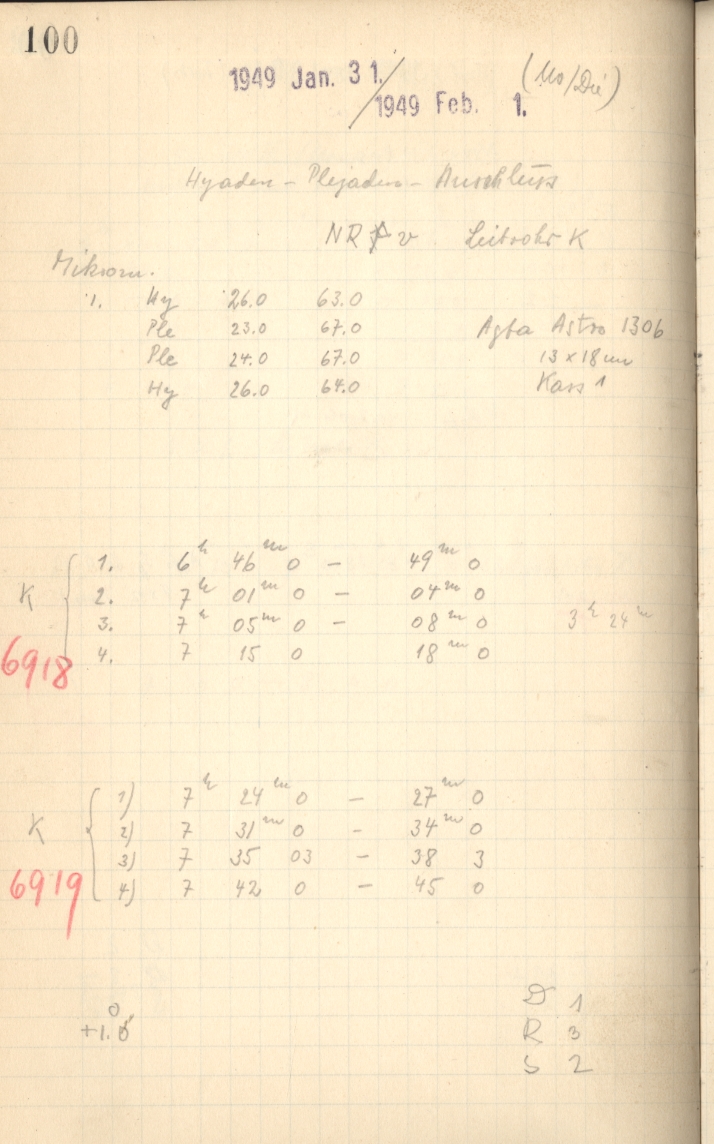 100
1949 Jan. 31. / 1949 Feb. 1. (Mo/Die)
Hyaden - Plejaden - Anschluss
NR v Leitrohr K
Mikrom.
1. Hy 26.0 63.0
Ple 23.0 67.0 Agfa Astro 1306
Ple 24.0 67.0 13 x 18 cm
Hy 26.0 64.0 Kass 1
1. 6h 46m 0 - 49m 0
K 2. 7h 01m 0 - 04m 0
3. 7h 05m 0 - 08m 0 3h 24m
6918 4. 7 15 0 18m 0
1) 7h 24m 0 - 27m 0
K 2) 7 31m 0 - 34m 0
3) 7 35 03 - 38 3
6919 4) 7 42 0 - 45 0
D 1
+1.0 R 3
S 2